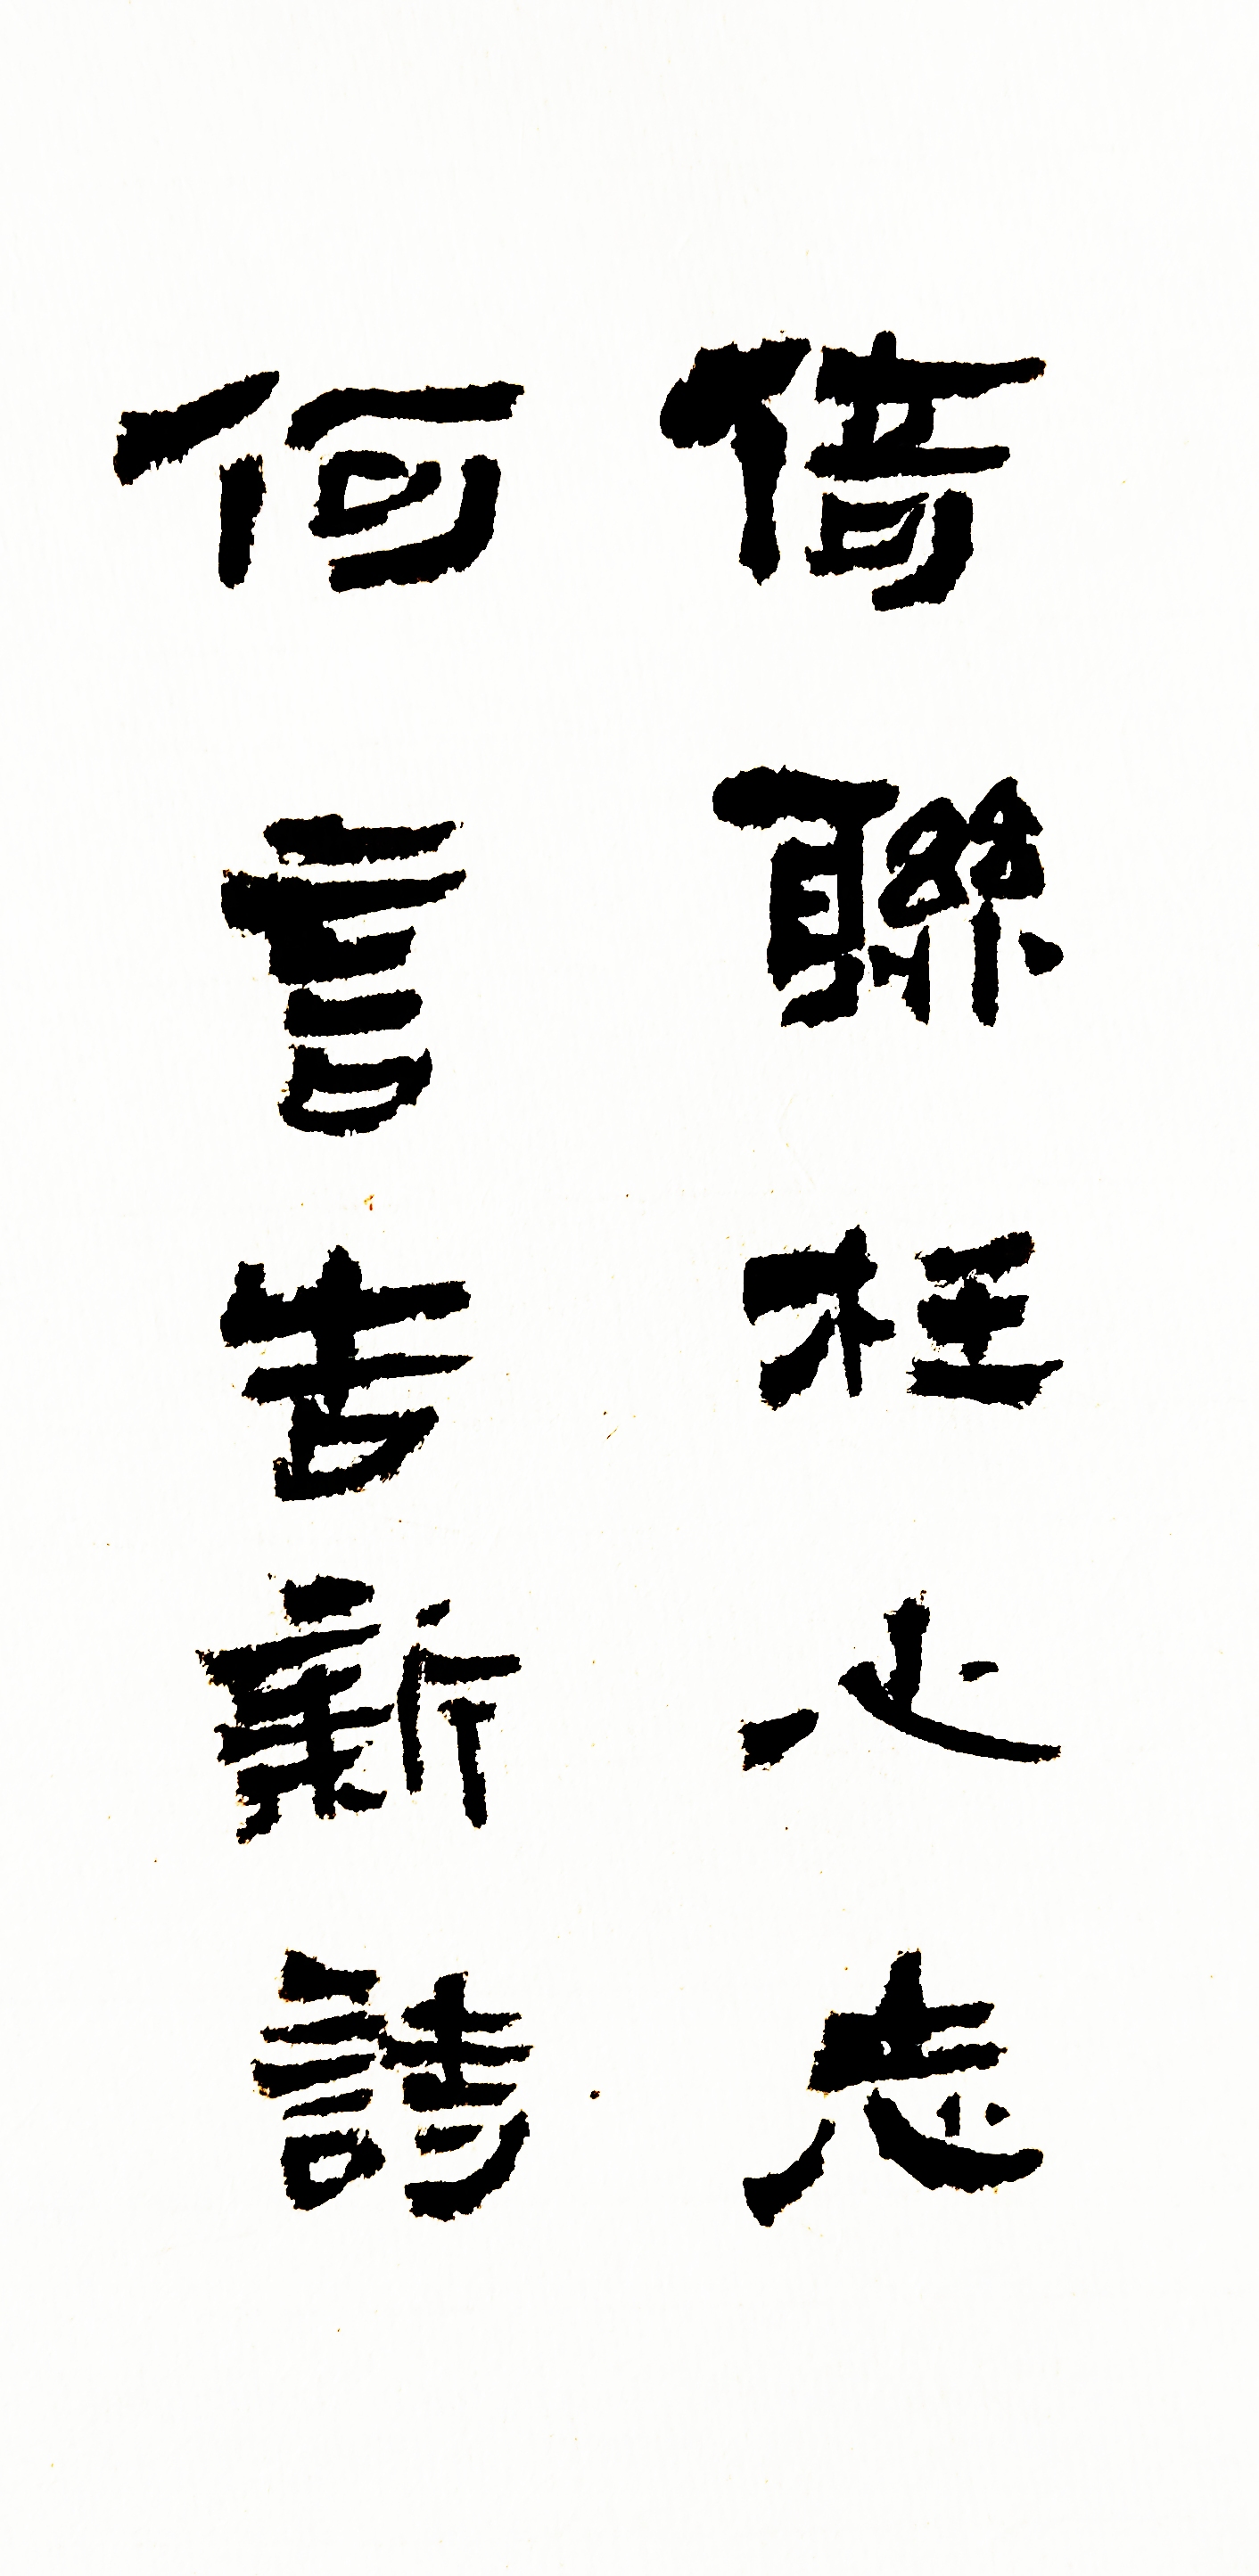 倚聯枉心志
何言告新詩